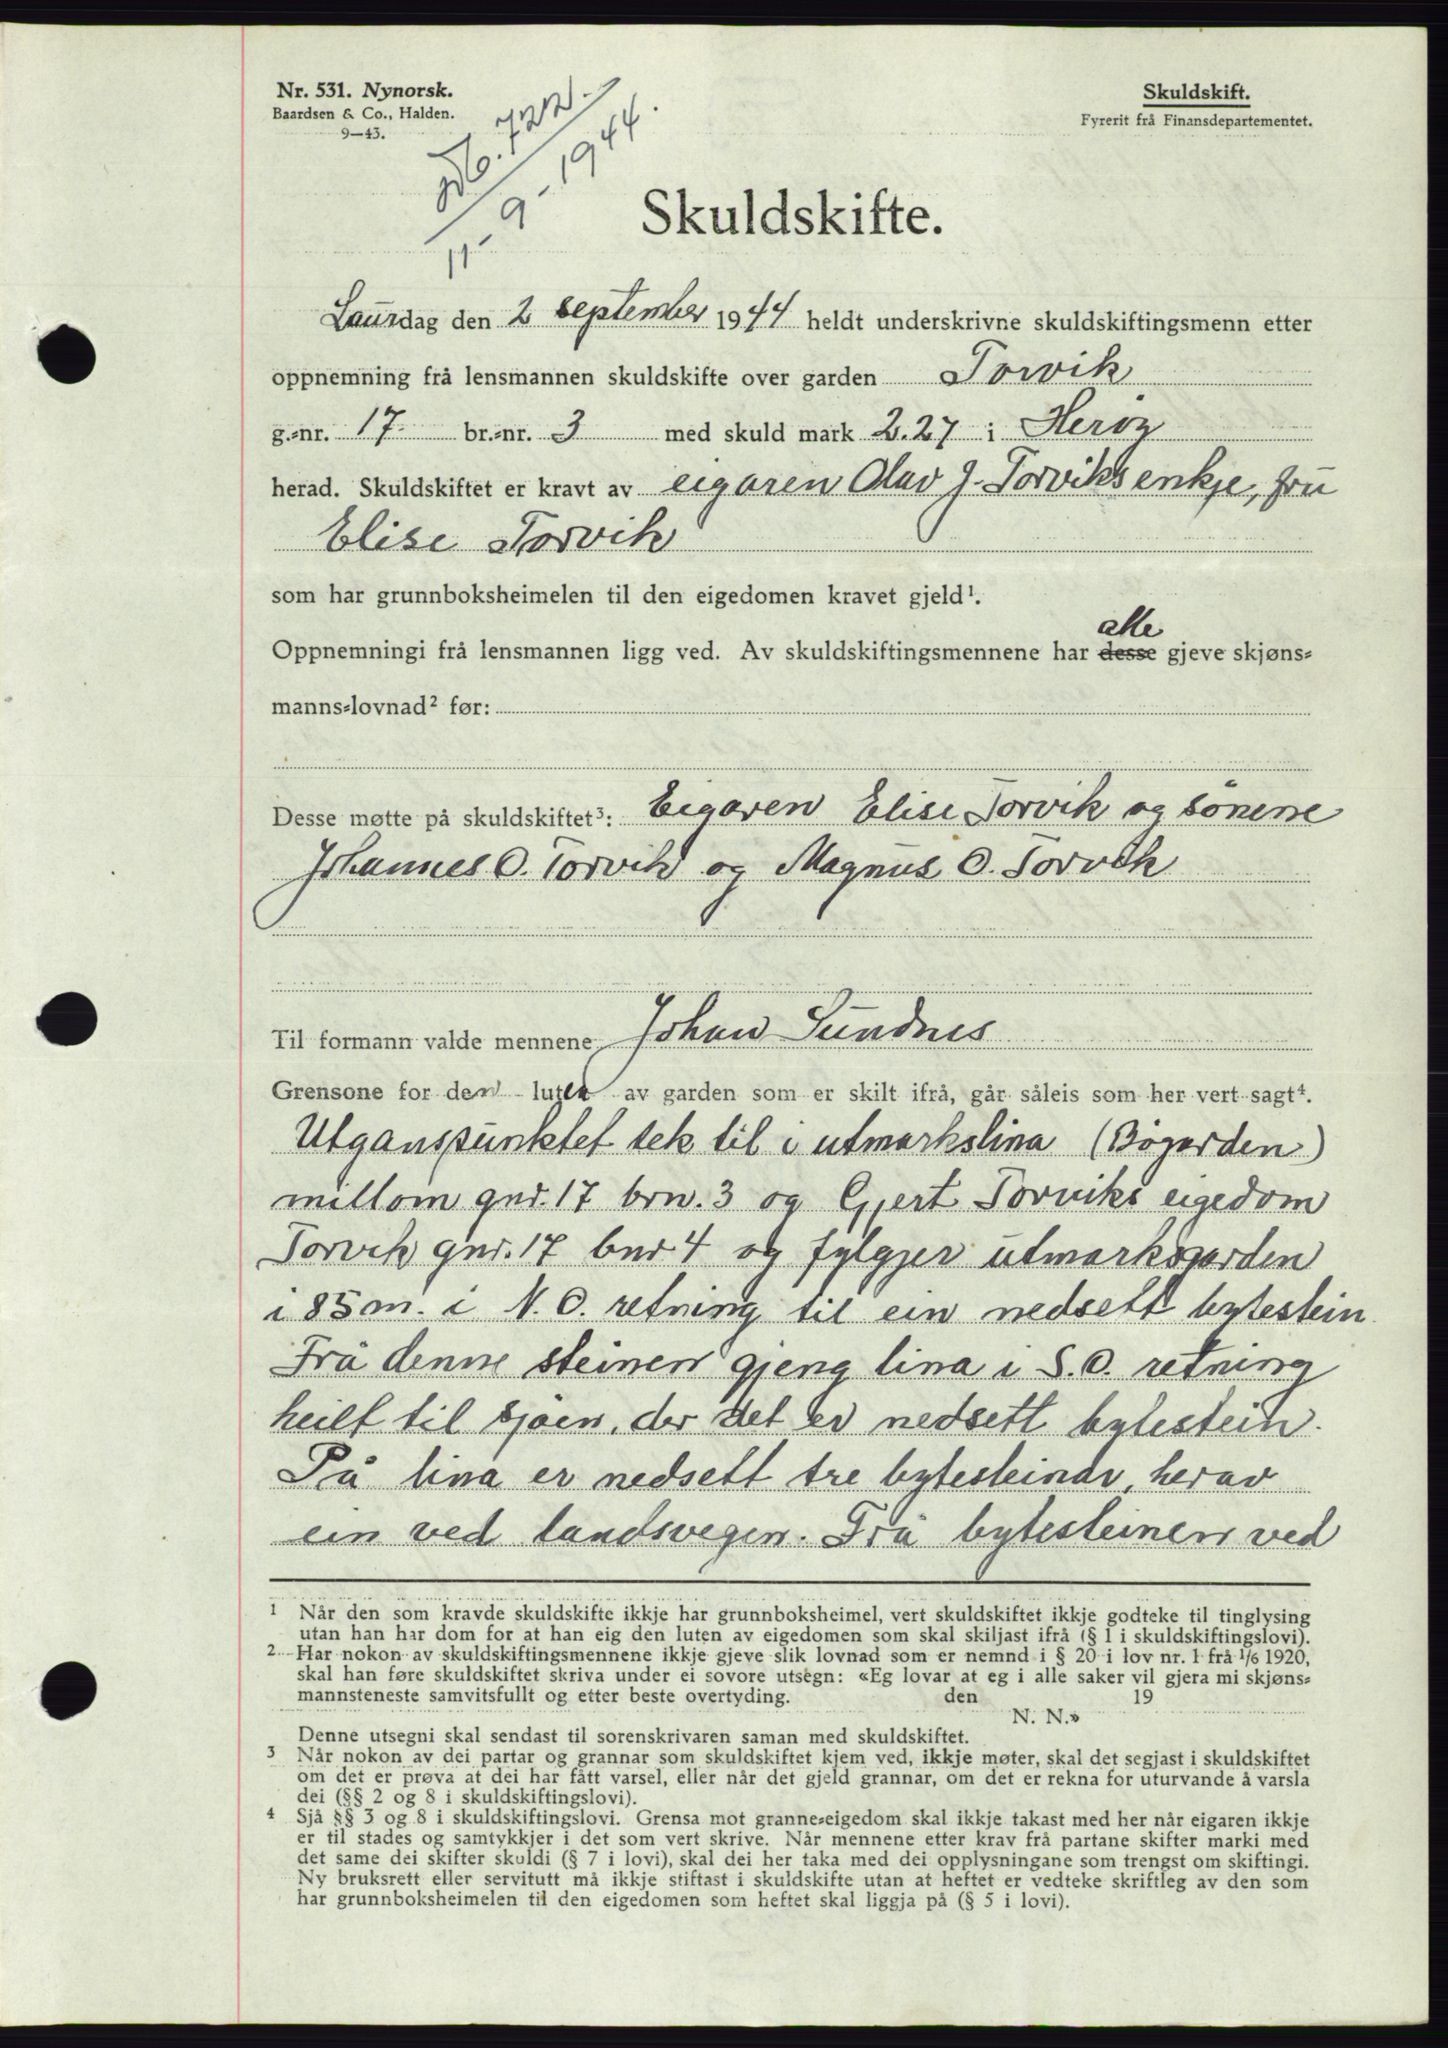 Nr. 531. Nynorsk.
Baardsen & Co., Halden.
9—43.
722.
11-9-1944.
Skuldskift.
Fyrerit frå Finansdepartementet.
Skuldskifte.
Laurdag den 2 september 1944 heldt underskrivne skuldskiftingsmenn etter
oppnemning frå lensmannen skuldskifte over garden Torvik
g.-nr. 17. br.-nr. 3 med skuld mark 2.27 i Herøy
herad. Skuldskiftet er kravt av eigaren Olav J. Torviks enkje, fru
Elise Torvik
som har grunnboksheimelen til den eigedomen kravet gjeld¹.
alle
Oppnemningi frå lensmannen ligg ved. Av skuldskiftingsmennene har desse gjeve skjøns-
manns-lovnad² før:
Desse møtte på skuldskiftet³: Eigaren Elise Torvik og sønene
Johannes O. Torvik og Magnus O. Torvik
Til formann valde mennene Johan Sundnes
Grensone for den luten av garden som er skilt ifrå, går såleis som her vert sagt⁴.
Utganspunktet tek til i utmarkslina (Bøgarden)
millom gnr. 17 brn. 3 og Gjert Torviks eigedom
Torvik gnr. 17 bnr 4 og fylgjer utmarksgarden
i 85 m. i N.O. retning til ein nedsett bytestein
Frå denne steinen gjeng lina i S.O. retning
heilt til sjøen, der det er nedsett bytestein.
På lina er nedsett tre bytesteinar, herav
ein ved landsvegen. Frå bytesteinen ved
1 Når den som kravde skuldskifte ikkje har grunnboksheimel, vert skuldskiftet ikkje godteke til tinglysing
utan han har dom for at han eig den luten av eigedomen som skal skiljast ifrå (§ 1 i skuldskiftingslovi).
2 Har nokon av skuldskiftingsmennene ikkje gjeve slik lovnad som er nemnd i § 20 i lov nr. 1 frå 1/6 1920,
skal han føre skuldskiftet skriva under ei sovore utsegn: «Eg lovar at eg i alle saker vil gjera mi skjøns-
mannsteneste samvitsfullt og etter beste overtyding. den 19
N. N.»
Denne utsegni skal sendast til sorenskrivaren saman med skuldskiftet.
3 Når nokon av dei partar og grannar som skuldskiftet kjem ved, ikkje møter, skal det segjast i skuldskiftet
om det er prøva at dei har fått varsel, eller når det gjeld grannar, om det er rekna for uturvande å varsla
dei (§§ 2 og 8 i skuldskiftingslovi).
4 Sjå §§ 3 og 8 i skuldskiftingslovi. Grensa mot granne-eigedom skal ikkje takast med her når eigaren ikkje
er til stades og samtykkjer i det som vert skrive. Når mennene etter krav frå partane skifter marki med
det same dei skifter skuldi (§ 7 i lovi), skal dei her taka med dei opplysningane som trengst om skiftingi.
Ny bruksrett eller servitutt må ikkje stiftast i skuldskifte utan at heftet er vedteke skriftleg av den som
har grunnboksheimelen til den eigedomen som heftet skal liggja på (§ 5 i lovi).